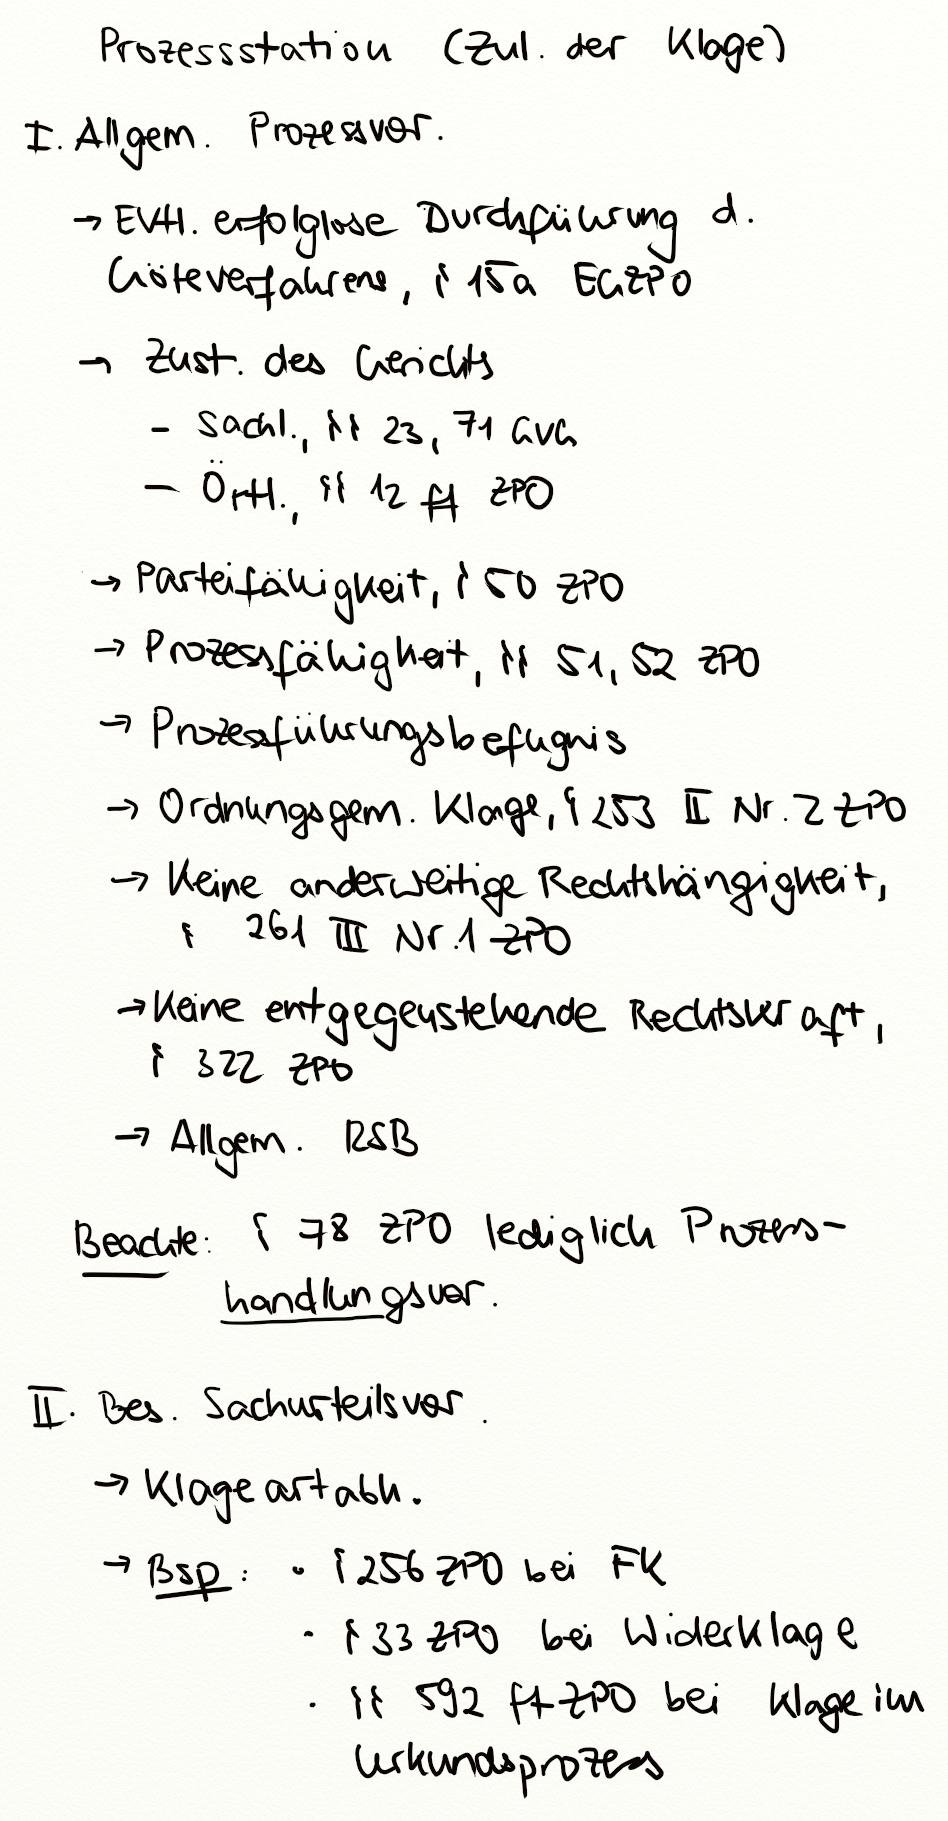 Prozessstation (Zul. der Klage)
I. Allgem. Prozessvor.
→ Evtl. erfolglose Durchführung d.
Güteverfahrens, § 15a EGZPO
→ Zust. des Gerichts
- Sachl., §§ 23, 71 GVG
- Örtl., §§ 12 ff ZPO
→ Parteifähigkeit, § 50 ZPO
→ Prozessfähigkeit, §§ 51, 52 ZPO
→ Prozessführungsbefugnis
→ Ordnungsgem. Klage, § 253 II Nr. 2 ZPO
→ Keine anderweitige Rechtshängigkeit,
§ 261 III Nr. 1 ZPO
→ Keine entgegenstehende Rechtskraft,
§ 322 ZPO
→ Allgem. RSB
Beachte: § 78 ZPO lediglich Prozess-
handlungsvor.
II. Bes. Sachurteilsvor.
→ Klageartabh.
→ Bsp: • § 256 ZPO bei FK
• § 33 ZPO bei Widerklage
• §§ 592 ff ZPO bei Klage im
Urkundsprozess